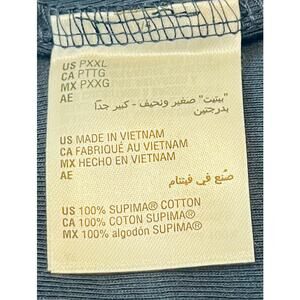 US PXXL
CA PTTG
MX PXXG
AE
"بيتيت" صغير ونحيف - كبير جدًا
بدرجتين
US MADE IN VIETNAM
CA FABRIQUÉ AU VIETNAM
MX HECHO EN VIETNAM
AE
صُنع في فيتنام
US 100% SUPIMA® COTTON
CA 100% COTON SUPIMA®
MX 100% algodón SUPIMA®